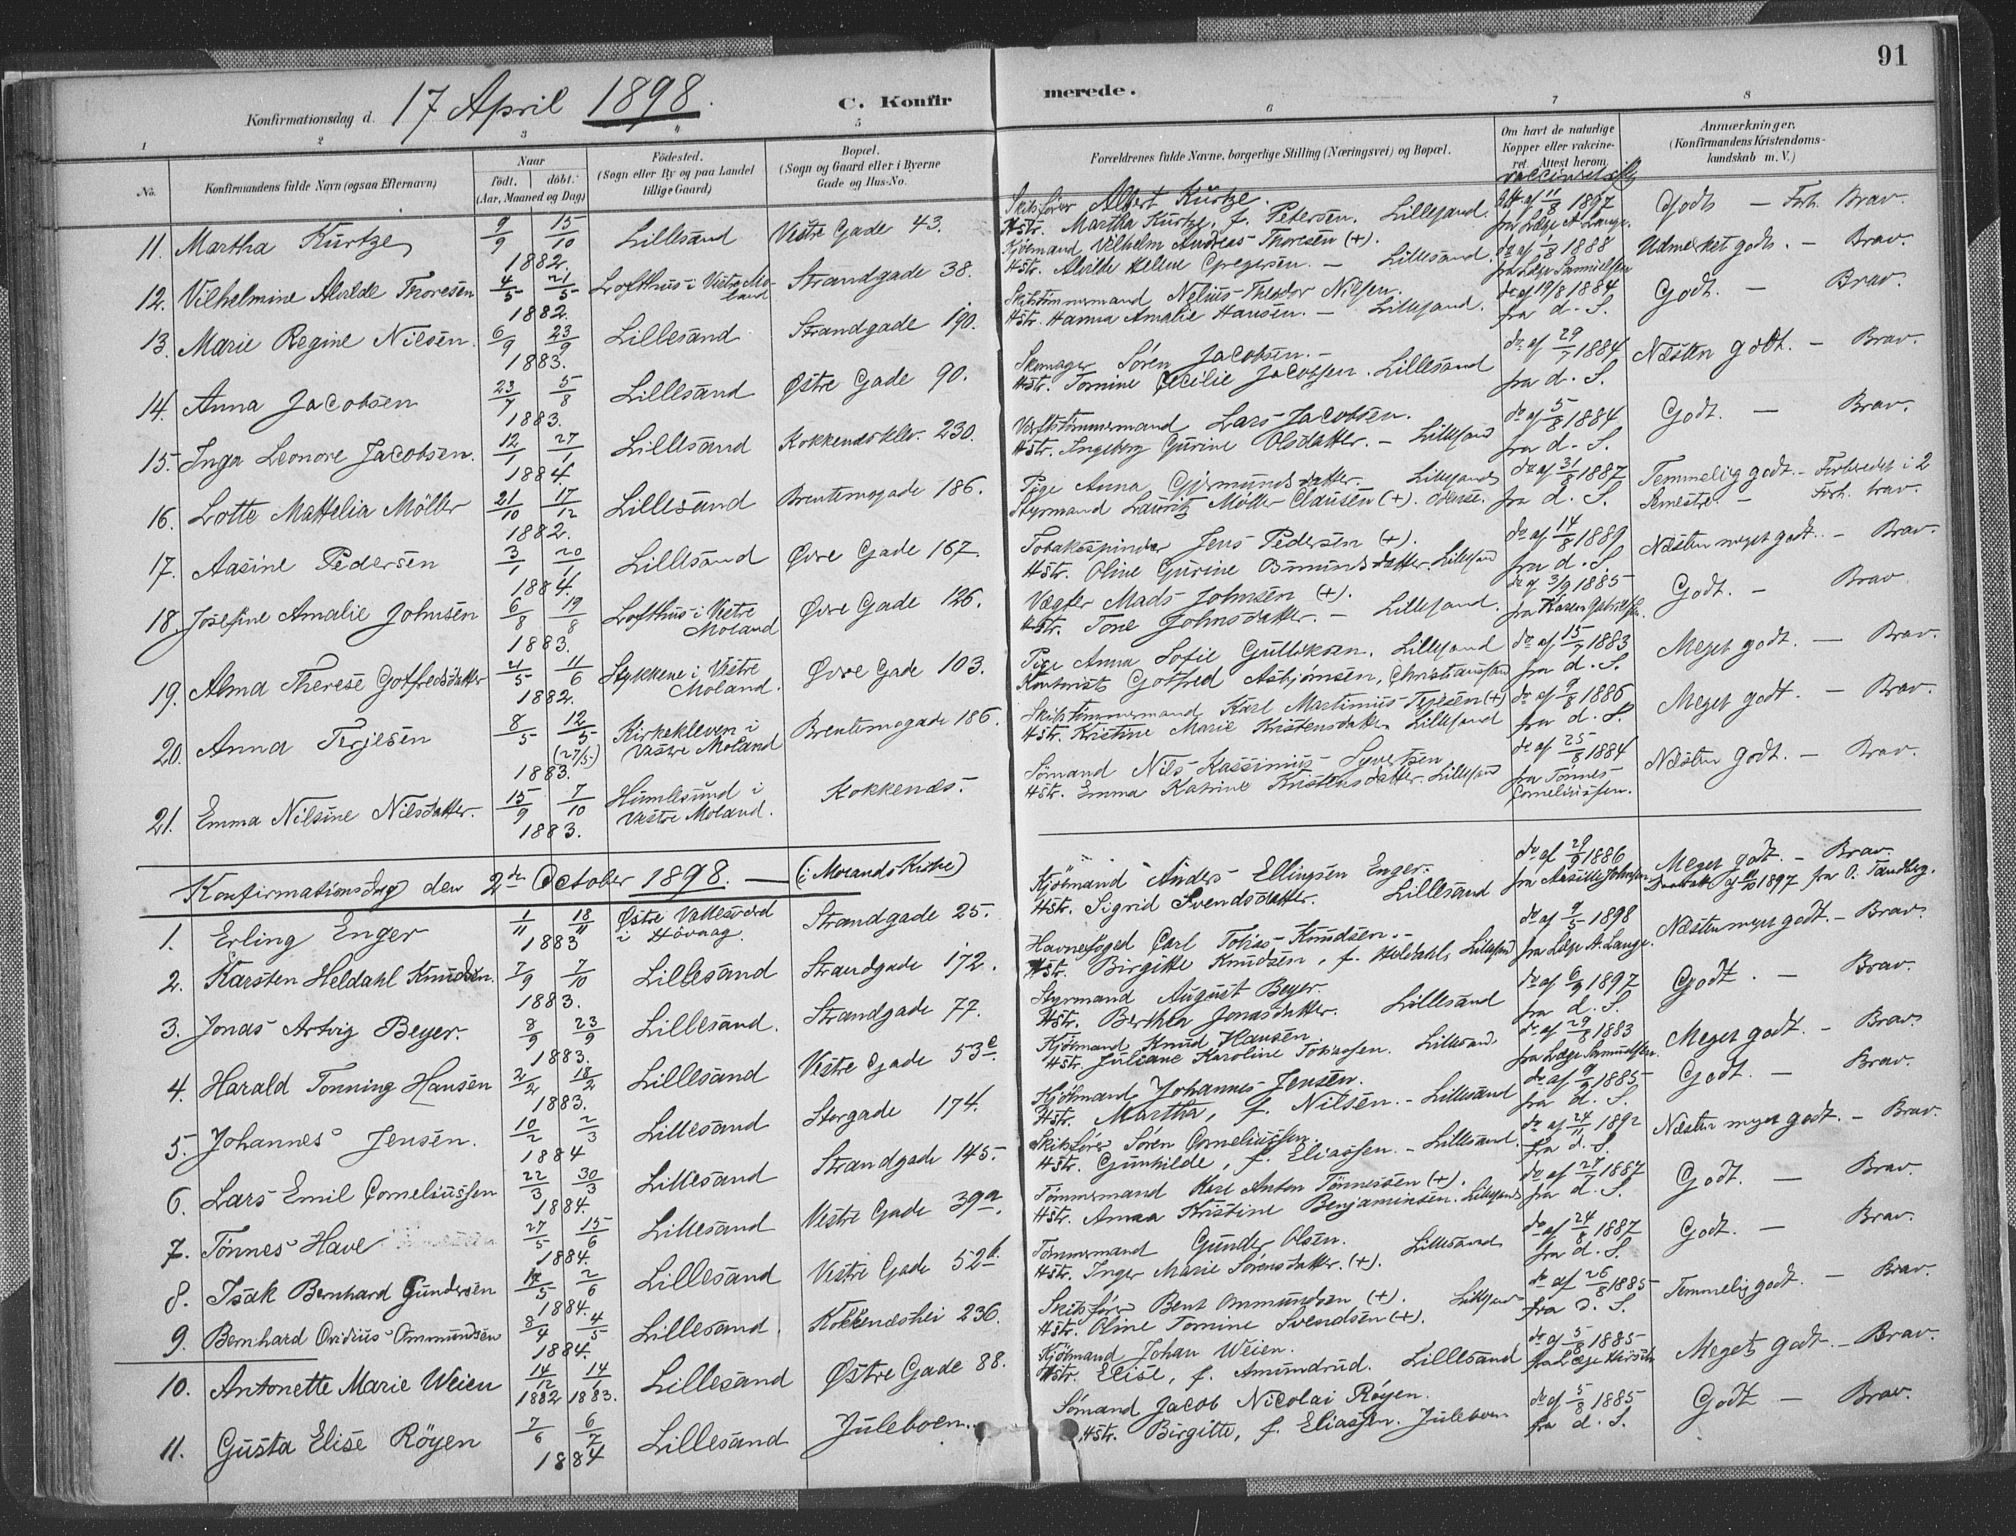 91
Konfirmationsdag d. 17 April 1898.
C. Konfirmerede.
1 2 3 4 5 6 7 8
No. Konfirmandens fulde Navn (ogsaa Efternavn) Naar født. døbt. (Aar, Maaned og Dag) Fødested. (Sogn eller By og paa Landet tillige Gaard) Bopæl. (Sogn og Gaard eller i Byerne Gade og Hus-No. Forældrenes fulde Navne, borgerlige Stilling (Næringsvei) og Bopæl. Om havt de naturlige Kopper eller vaccineret. Attest herom Anmærkninger. (Konfirmandens Kristendomskundskab m. V.)
11. Martha Kurtze 9/9 15/10 1882. Lillesand Vestre Gade 43. Skibsfører Albert Kurtze.
Hstr. Martha Kurtze, f. Petersen. Lillesand. 11/8 1897 fra Læge A. Lange. Godt — Forh. Brav.
12. Vilhelmine Alvilde Thoresen 4/5 21/5 1882. Lofthus i Vestre Moland Strandgade 38. Kjøbmand Vilhelm Andreas Thoresen (+).
Hstr. Alvilde Helene Gregersen. — Lillesand. do af 1/8 1888 fra Læge Samuelsen Udmerket godt. — Brav.
13. Marie Regine Nilsen. 6/9 23/9 1883. Lillesand Strandgade 190. Skibstømmermand Nelius Theodor Nilsen.
Hstr. Hanna Amalie Hansen. — Lillesand. do af 19/8 1884 fra d. S. Godt. — Brav.
14. Anna Jacobsen 23/7 5/8 1883. Lillesand Østre Gade 90. Skomager Søren Jacobsen. —
Hstr. Tomine Cecilie Jacobsen. Lillesand do af 29/7 1884 fra d. S. Næsten godt. — Brav.
15. Inga Leonore Jacobsen. 12/1 27/1 1884. Lillesand Kokkenesklev. 230. Værftstømmermand Lars Jacobsen.
Hstr. Ingeborg Gurine Olsdatter. — Lillesand do af 5/8 1884 fra d. S. Godt. — Brav.
16. Lotte Mathelia Möller 21/10 17/12 1882. Lillesand Brentemogade 186. Pige Anna Gjermundsdatter. Lillesand
Styrmand Lauritz Möller Clausen (+). do af 31/8 1887 fra d. S. Temmelig godt. — Forberedet i 2 Semestre. — Forh. brav.
17. Aasine Pedersen 3/1 20/1 1884. Lillesand Øvre Gade 167. Tobakspinder Jens Pedersen (+).
Hstr. Oline Gurine Omundsdatter. Lillesand do af 14/8 1889 fra d. S. Næsten meget godt. — Brav.
18. Josefine Amalie Johnsen 6/8 19/8 1883. Lofthus i Vestre Moland Øvre Gade 126. Vægter Mads Johnsen (+).
Hstr. Tone Johnsdatter. — Lillesand. do af 3/9 1885 fra Karen Gabrielsen. Godt. — Brav.
19. Alma Therese Gotfredsdatter 21/5 11/6 1882. Stykkene i Vestre Moland. Øvre Gade 103. Pige Anna Sofie Gulliksen, Lillesand
Kontorist Gotfred Asbjørnsen, Christianssand do af 15/7 1883 fra d. S. Meget godt. — Brav.
20. Anna Terjesen 8/5 12/5 (27/5) 1883. Kirkekleven i Vestre Moland Brentemogade 186. Skibstømmermand Karl Martinius Terjesen (+)
Hstr. Kristine Marie Kristensdatter. Lillesand do af 9/8 1886 fra d. S. Meget godt. — Brav.
21. Emma Nilsine Nilsdatter. 15/9 7/10 1883. Humlesund i Vestre Moland. Kokkenæs. Sømand Nils Kassimius Syvertsen
Hstr. Emma Katrine Kristensdatter. Lillesand do af 25/8 1884 fra Tønnes Corneliussen. Næsten godt. — Brav.
Konfirmationsdag den 2den October 1898. — (i Molands Kirke)
1. Erling Enger 1/11 18/11 1883 Østre Vallesværd i Høvaag. Strandgade 25. Kjøbmand Anders Ellingsen Enger.
Hstr. Sigrid Svendsdatter. Lillesand do af 29/9 1886 fra Aasille Johnsen Meget godt. — Brav.
1897 fra O. Tandberg.
2. Karsten Heldahl Knudsen. 7/9 7/10 1883. Lillesand Strandgade 172. Havnefoged Carl Tobias Knudsen. —
Hstr. Birgitte Knudsen, f. Heldahl, Lillesand do af 9/5 1898 fra Læge A. Lange. Næsten meget godt. — Brav.
3. Jonas Artvig Beyer. 8/9 23/9 1883. Lillesand. Strandgade 77. Styrmand August Beyer.
Hstr. Berthea Jonasdatter. Lillesand do af 6/9 1897 fra d. S. Godt. — Brav.
4. Harald Tonning Hansen 2/2 18/2 1883. Lillesand Vestre Gade 53c. Kjøbmand Knud Hansen
Hstr. Juliane Karoline Tobiassen. Lillesand. do af 29/8 1883 fra Læge Samuelsen. Meget godt. — Brav.
5. Johannes Jensen. 10/2 2/3 1884 Lillesand Storgade 174. Kjøbmand Johannes Jensen.
Hstr. Martha, f. Nilsen. — Lillesand do af 9/9 1885 fra d. S. Godt. — Brav.
6. Lars Emil Corneliussen 22/3 30/3 1884. Lillesand Strandgade 145. Skibsfører Søren Corneliussen.
Hstr. Gunhilde, f. Eliassen. — Lillesand. do af 24/1 1892 fra d. S. Næsten meget godt. — Brav.
7. Tønnes Have 27/5 15/6 1884. Lillesand Vestre Gade 39a. Tømmermand Karl Anton Tønnessen (+).
Hstr. Anna Kristine Benjaminsen. Lillesand do af 27/7 1887 fra d. S. Godt. — Brav.
8. Isak Bernhard Gundersen 5 2/6 1884. Lillesand Vestre Gade 52b. Tømmermand Gunder Olsen.
Hstr. Inger Marie Sørensdatter. (+). Lillesand do af 24/8 1887 fra d. S. Godt. — Brav.
9. Bernhard Ovidius Ommundsen 8/4 4/5 1884. Lillesand. Kokkenæshei 236. Skibsfører Bent Ommundsen (+). Lillesand
Hstr. Oline Tomine Svendsen (+). do af 26/8 1885 fra d. S. Temmelig godt. — Brav.
10. Antonette Marie Weien 14/12 1882 14/1 1883. Lillesand Østre Gade 88. Kjøbmand Johan Weien.
Hstr. Elise, f. Amundrud. Lillesand do af 5/8 1885 fra Læge Hirsch Meget godt. — Brav.
11. Gusta Elise Røyen 7/6 6/7 1884 Lillesand Juleboen. Sømand Jacob Nicolai Røyen.
Hstr. Birgitte, f. Eliassen. Juleboen do af 5/8 1885 fra d. S. Godt — Brav.